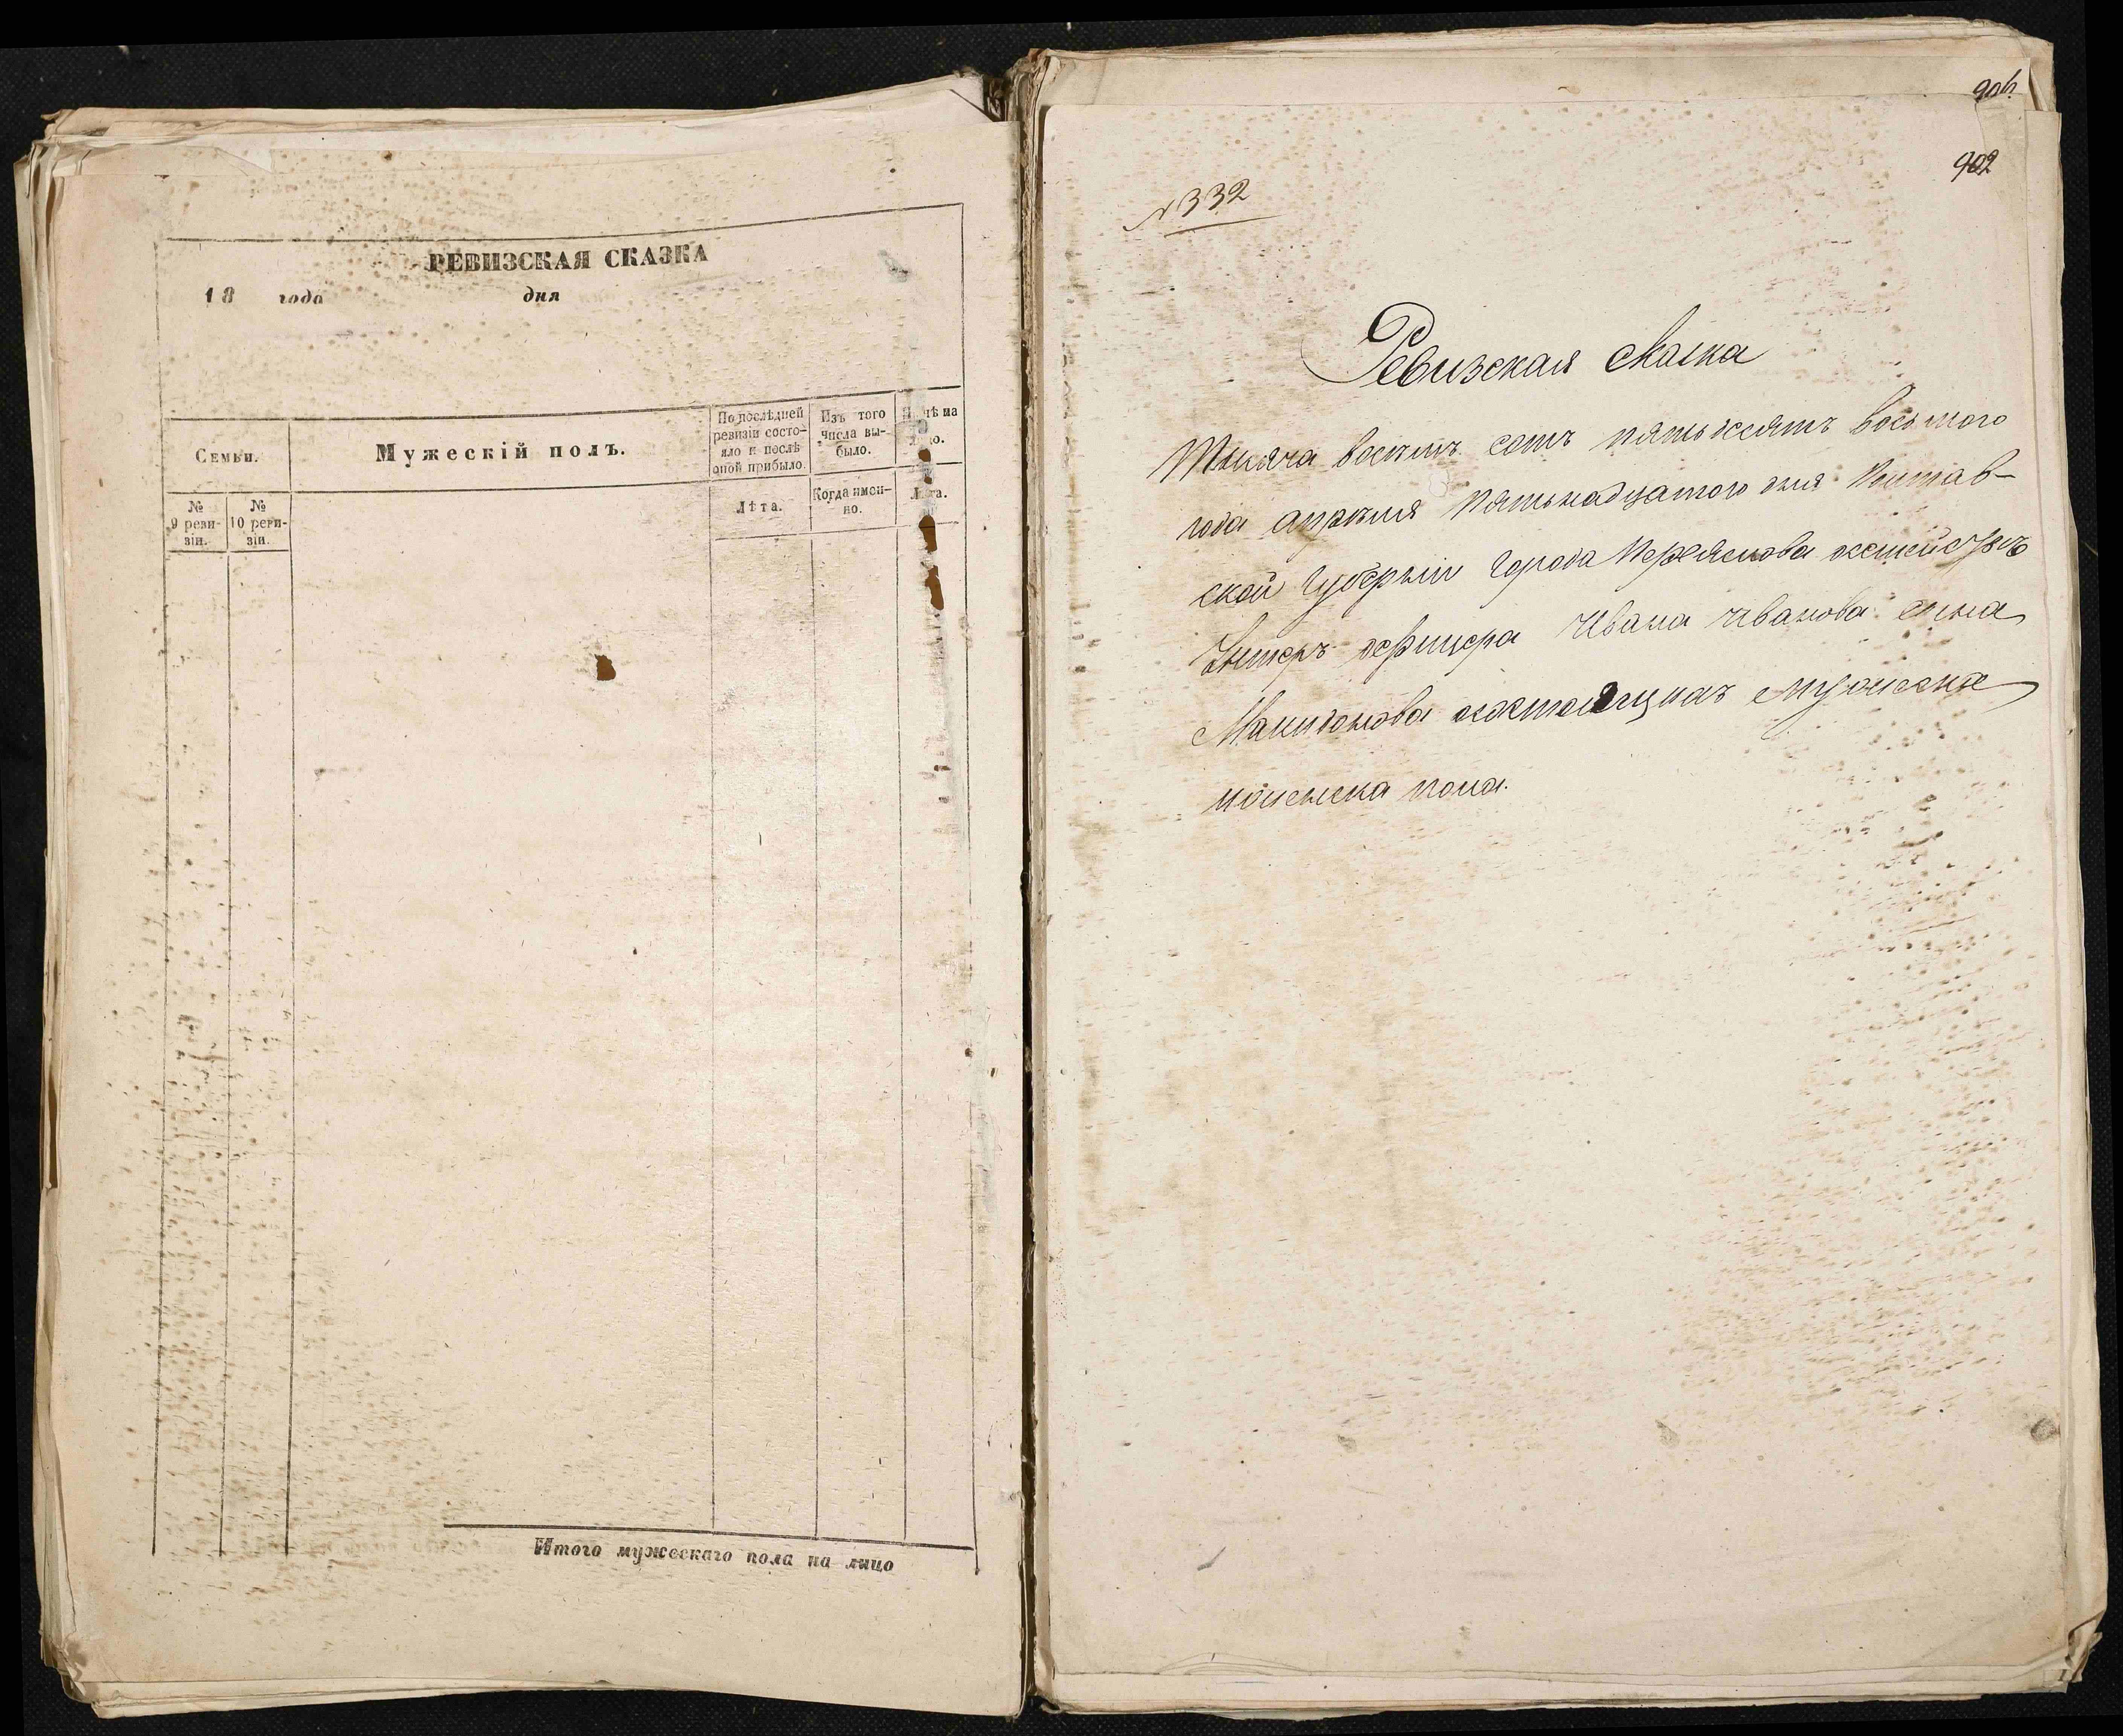 РЕВИЗСКАЯ СКАЗКА
18 года дня
Семьи.
Мужескій полъ.
По послѣдней ревизіи состояло и послѣ оной прибыло.
Изъ того числа выбыло.
№ 9 ревизіи.
№ 10 ревизіи.
Лѣта.
Когда именно.
Лѣта.
Итого мужескаго пола на лицо
906.
902
№332
Ревизская сказка
Тысяча восемъ сотъ пятьдесятъ восьмого
года апрѣля пятьнадцатого дня Полтав-
ской Губерніи города Переяслова
Унтеръ офицера Ивана Иванова сына
мужеска
иженска пола.